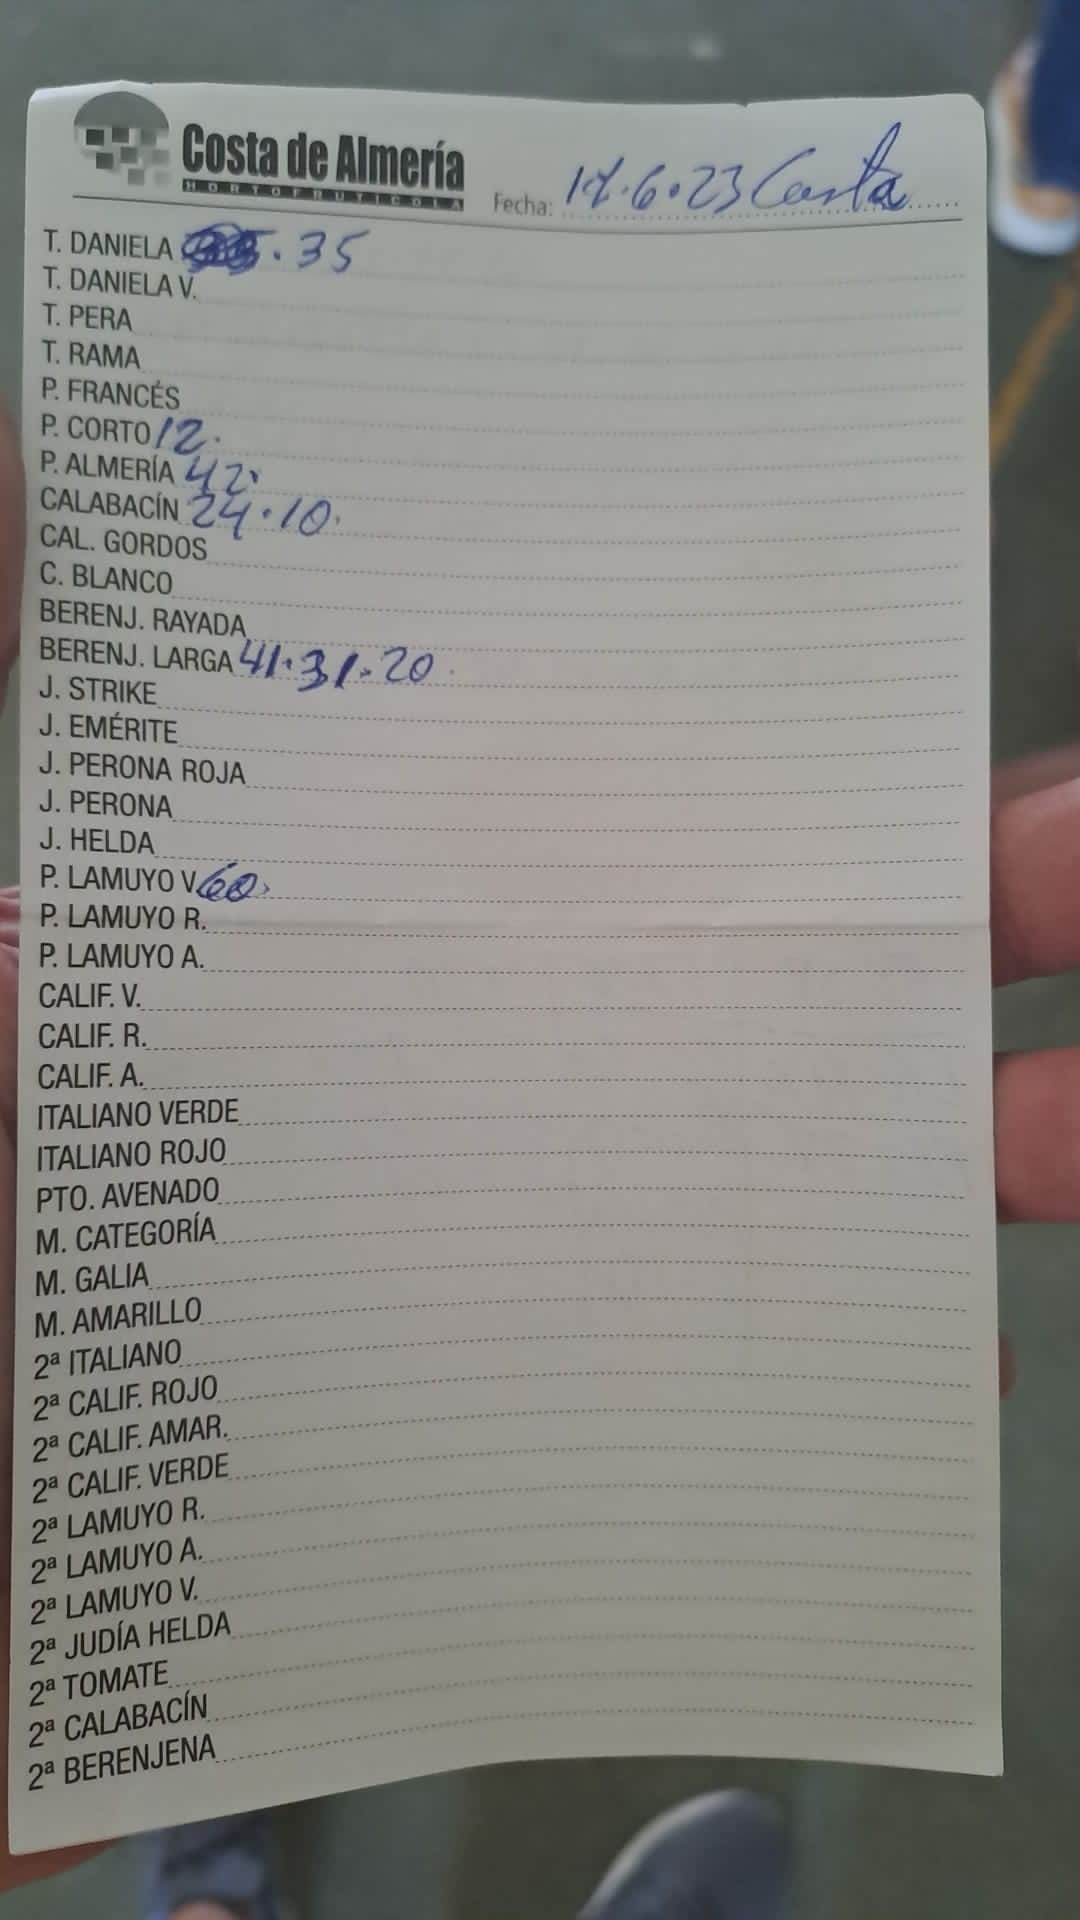 Costa de Almería
HORTOFRUTICOLA
Fecha: 17.6.23 Costa
T. DANIELA . 35
T. DANIELA V.
T. PERA
T. RAMA
P. FRANCÉS
P. CORTO 12.
P. ALMERÍA 42.
CALABACÍN 24.10.
CAL. GORDOS
C. BLANCO
BERENJ. RAYADA
BERENJ. LARGA 41.31.20.
J. STRIKE
J. EMÉRITE
J. PERONA ROJA
J. PERONA
J. HELDA
P. LAMUYO V. 60.
P. LAMUYO R.
P. LAMUYO A.
CALIF. V.
CALIF. R.
CALIF. A.
ITALIANO VERDE
ITALIANO ROJO
PTO. AVENADO
M. CATEGORÍA
M. GALIA
M. AMARILLO
2ª ITALIANO
2ª CALIF. ROJO
2ª CALIF. AMAR.
2ª CALIF. VERDE
2ª LAMUYO R.
2ª LAMUYO A.
2ª LAMUYO V.
2ª JUDÍA HELDA
2ª TOMATE
2ª CALABACÍN
2ª BERENJENA